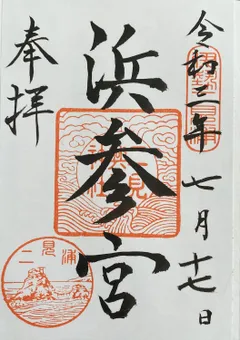 令和三年 七月十七日
浜参宮
奉拝
二見浦